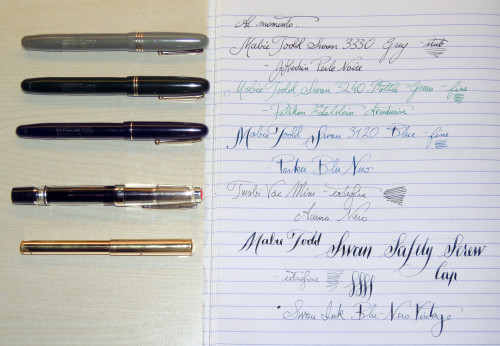 Al momento...
Mabie Todd Swan 3330 Grey - stub
- J. Herbin Perle Noire
Mabie Todd Swan 3240 Bottle Green - fine
- Pelikan Edelstein Aventurine
Mabie Todd Swan 3120 Blue - fine
- Parker Blu Nero
Twsbi Vac Mini - extrafine
Aurora Nero
Mabie Todd Swan Safety Screw
Cap
- extrafine
Swan Ink Blu-Nero Vintage